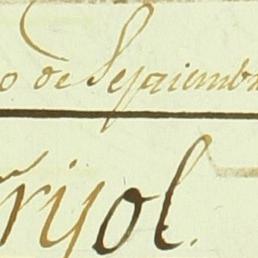 o de Septiembr
rijol.